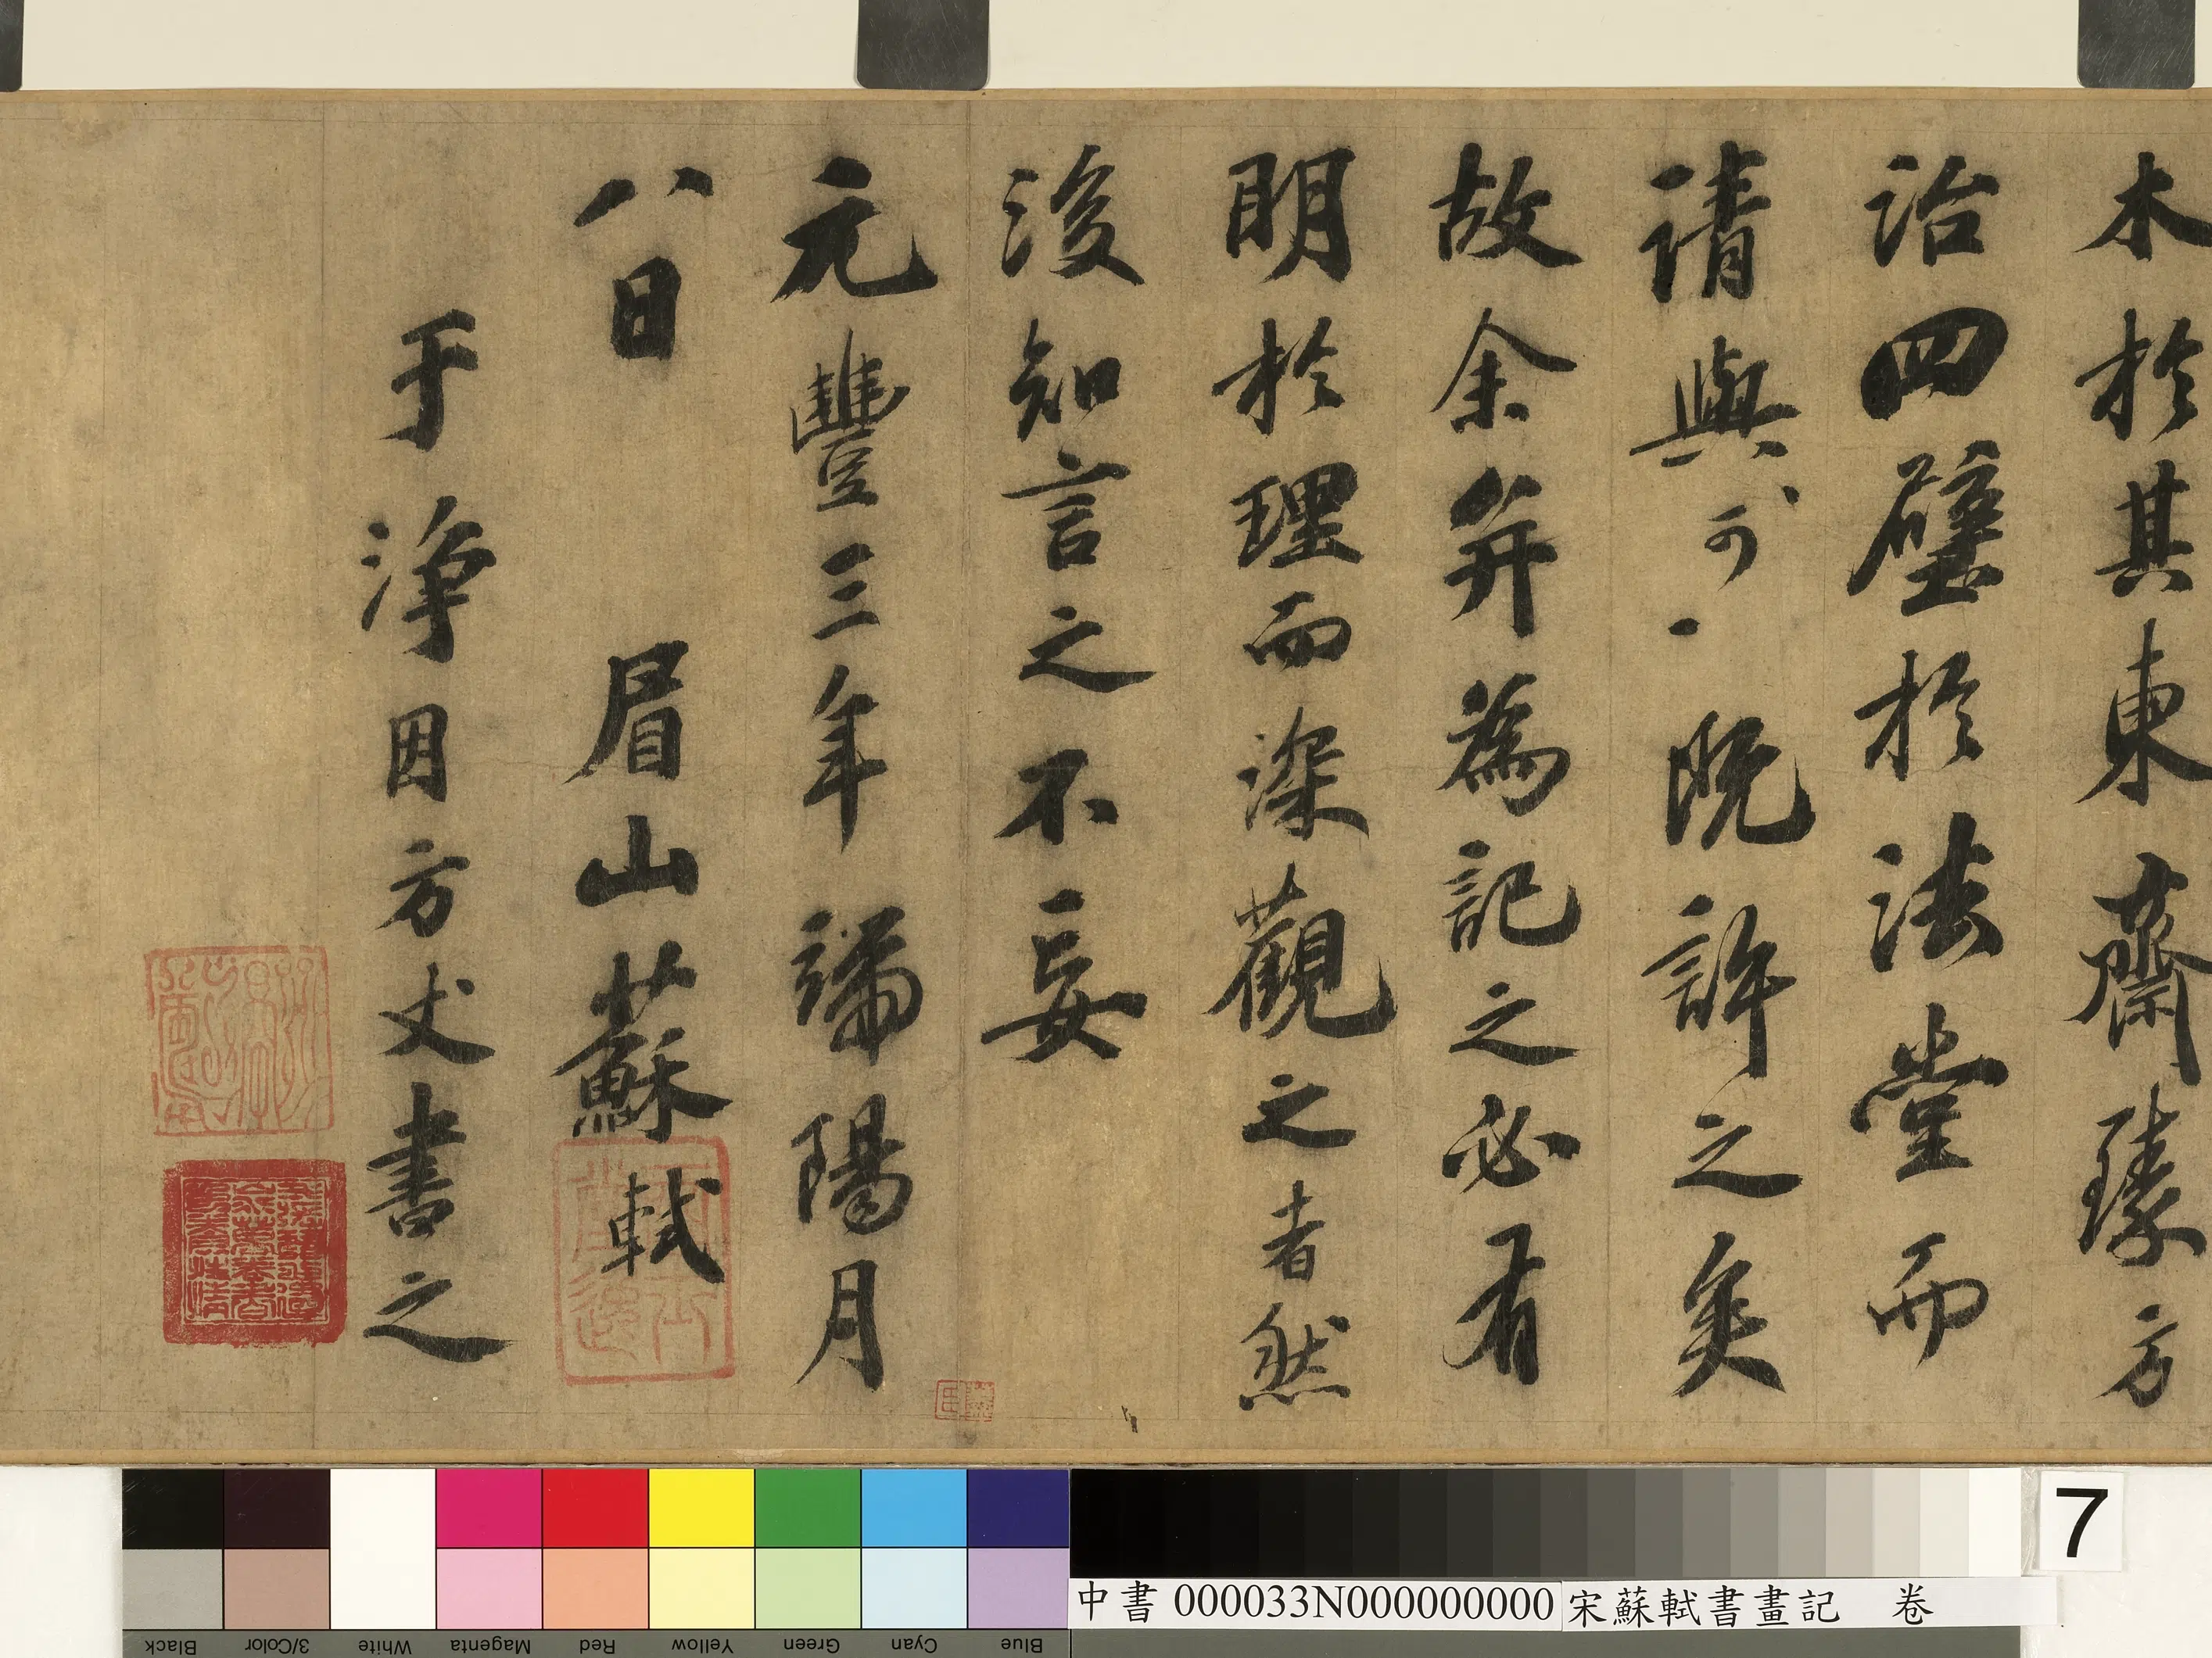 木於其東齋臻方
治四壁於法堂而
請與可既許之矣
故余并為記之必有
明於理而深觀之者然
後知言之不妄
元豐三年端陽月
八日 眉山蘇軾
于淨因方丈書之
7
中書 000033N000000000 宋蘇軾書畫記 卷
Black 3/Color White Magenta Red Yellow Green Cyan Blue